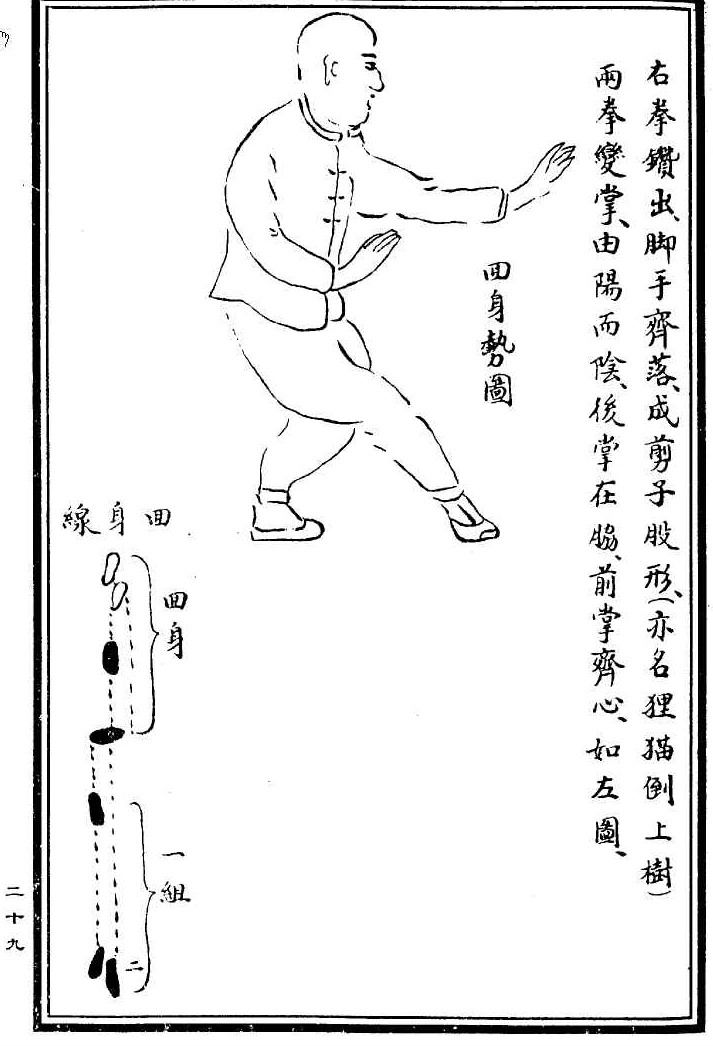 右拳鑽出、脚手齊落、成剪子股形、(亦名狸猫倒上樹)
兩拳變掌、由陽而陰、後掌在脇、前掌齊心、如左圖、
回身勢圖
回身線
回身
一組
二
二十九